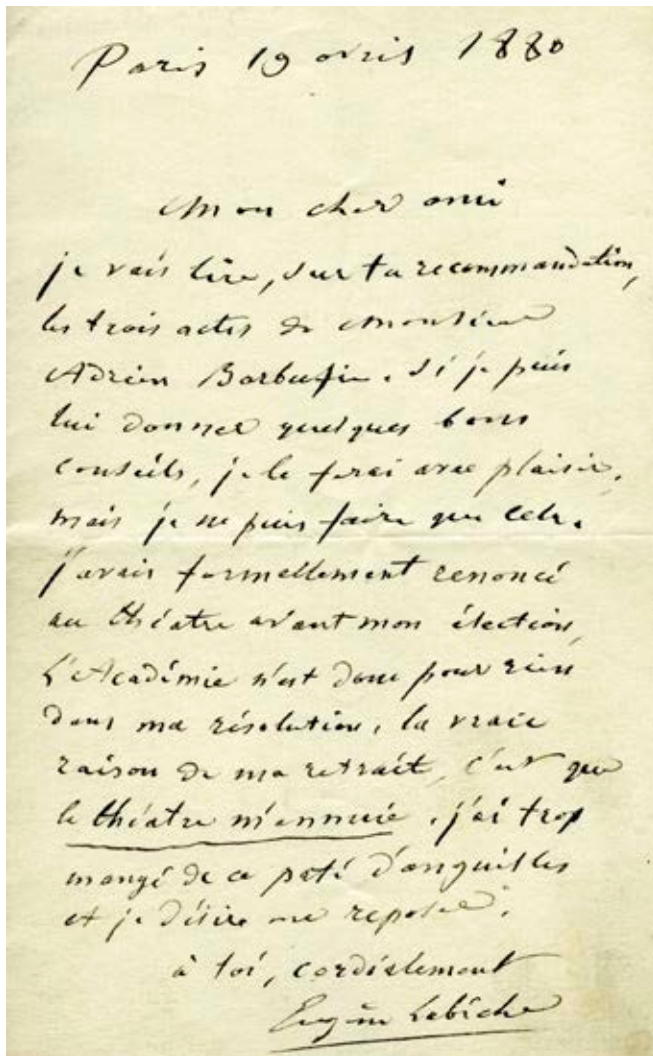 Paris 19 avril 1880
Mon cher ami
je vais lire, sur ta recommandation,
les trois actes de Monsieur
Adrien
Si je puis
lui donner quelques bons
conseils, je le ferai avec plaisir,
mais je ne puis faire que cela.
j'avais formellement renoncé
au théatre avant mon élection,
L'Académie n'est donc pour rien
dans ma résolution, la vraie
raison de ma retrait, c'est que
le théatre m'ennuie. j'ai trop
mangé de ce paté d'anguilles
et je désire me reposer.
à toi, cordialement
Eugène Labiche